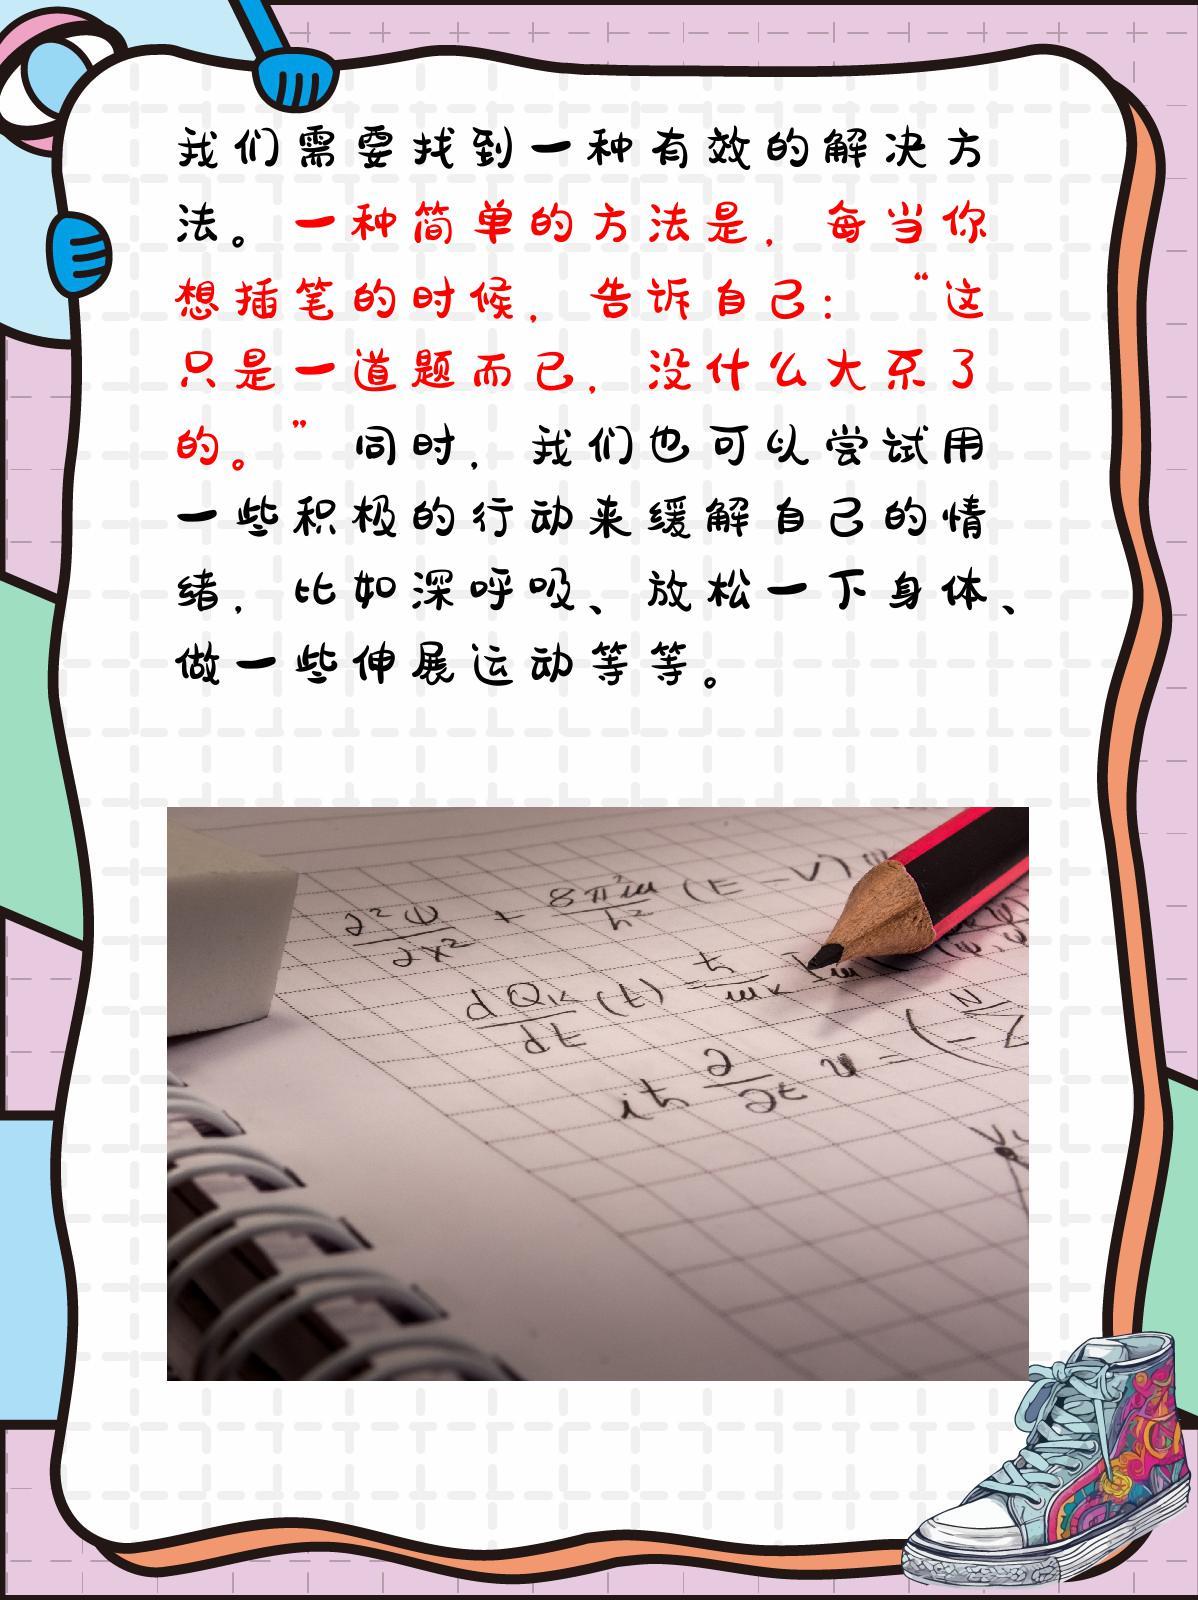 我们需要找到一种有效的解决方
法。一种简单的方法是，每当你
想插笔的时候，告诉自己：“这
只是一道题而已，没什么大不了
的。”同时，我们也可以尝试用
一些积极的行动来缓解自己的情
绪，比如深呼吸、放松一下身体、
做一些伸展运动等等。
∂²Ψ/∂x² + 8π²m/h² (E - V)
dQₖ/dt (t) = ħ/mₖ Im
iħ ∂/∂t Ψ = (-